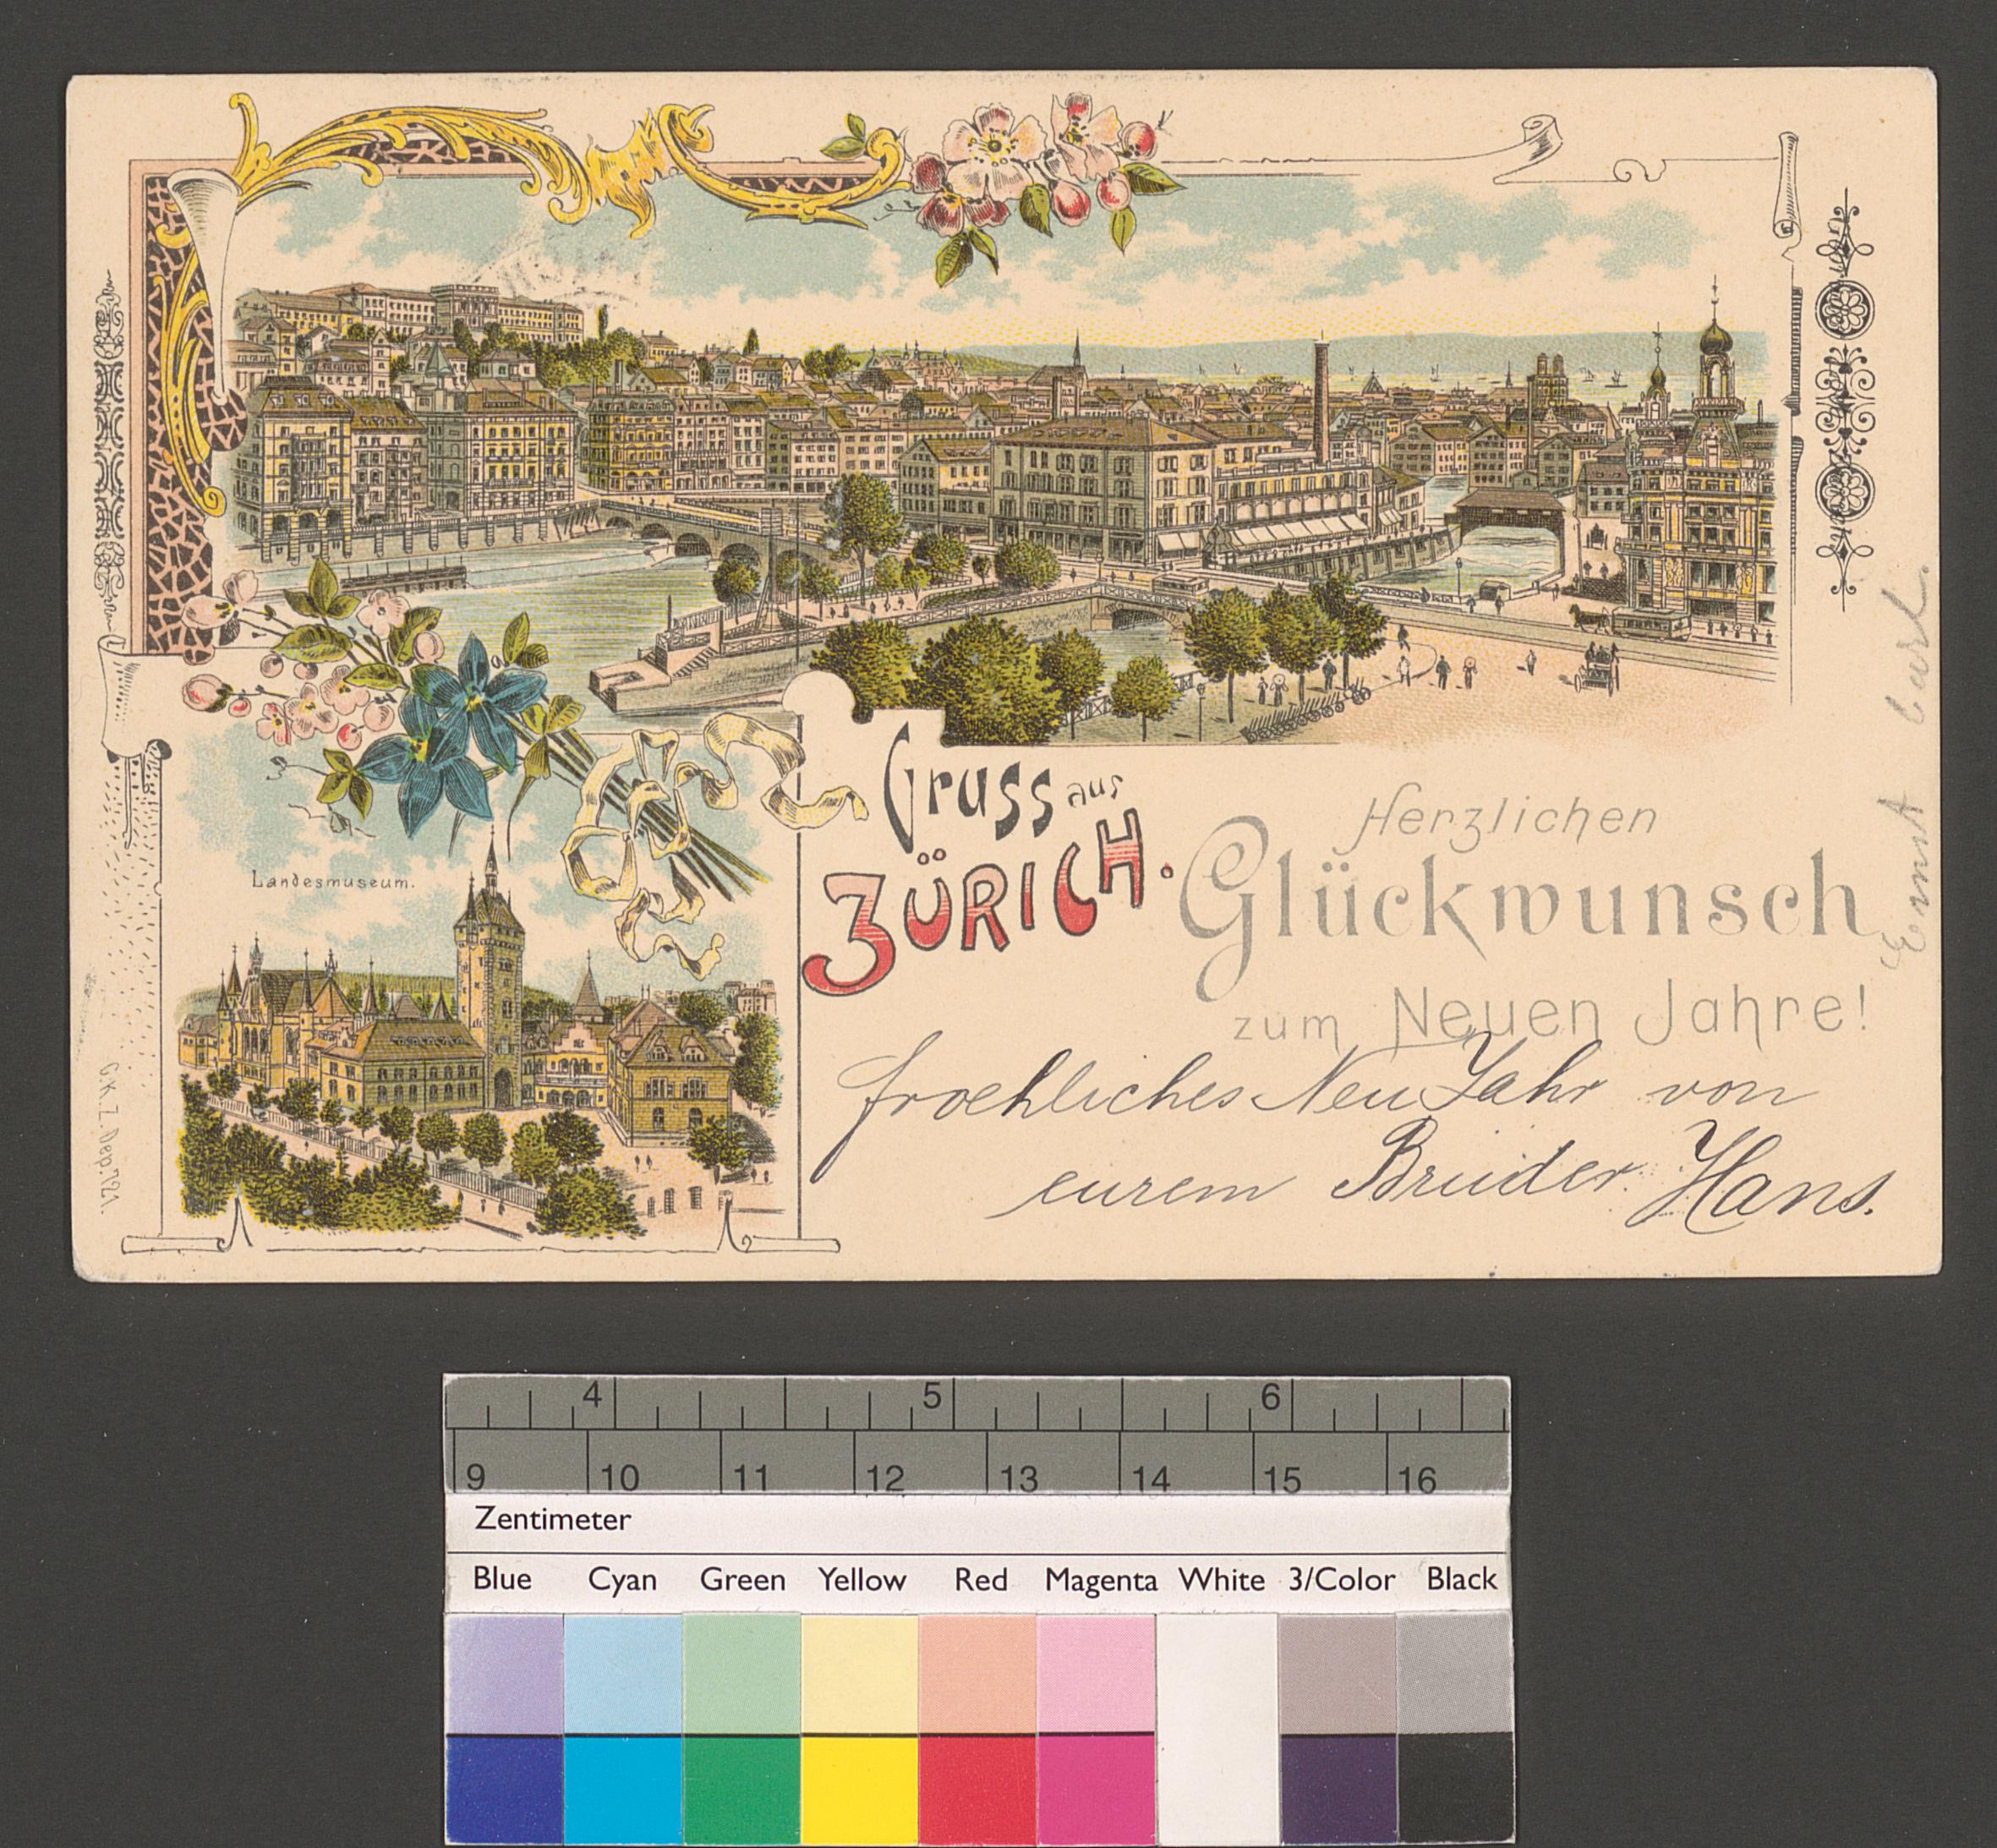 Landesmuseum.
Gruss aus
ZÜRICH.
Herzlichen
Glückwunsch
zum Neuen Jahre!
froehliches Neu Jahr von
eurem Bruder Hans.
Ernst
G.K.Z. Dep. 721.
4 5 6
9 10 11 12 13 14 15 16
Zentimeter
Blue Cyan Green Yellow Red Magenta White 3/Color Black